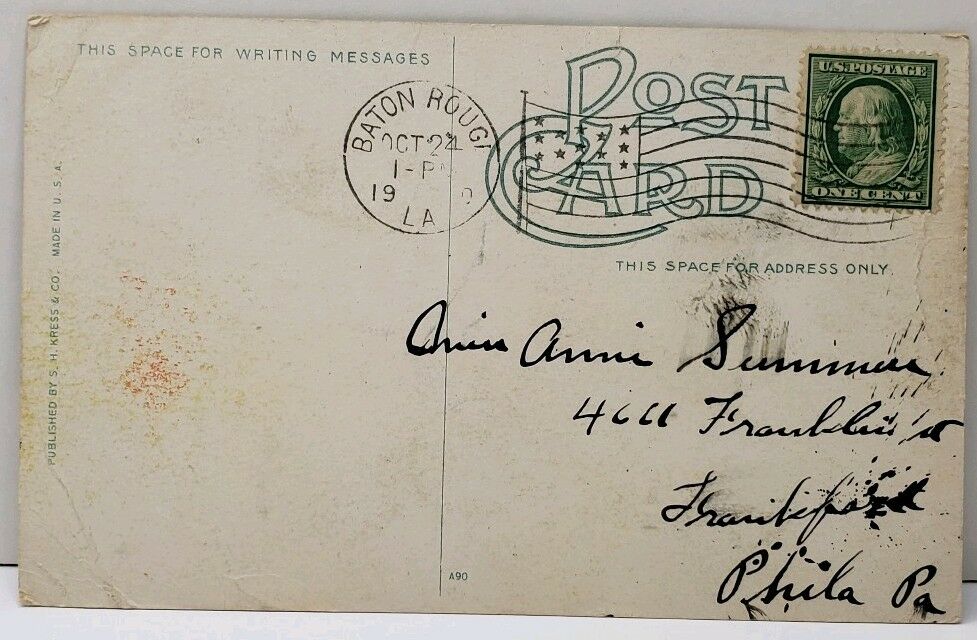 THIS SPACE FOR WRITING MESSAGES
POST CARD
U.S. POSTAGE
ONE CENT
BATON ROUG
OCT 24
1-P
19 0
LA
THIS SPACE FOR ADDRESS ONLY.
PUBLISHED BY S. H. KRESS & CO. MADE IN U. S. A.
Miss Annie Summer
4611 Franklin st
Frankford
Phila Pa
A90